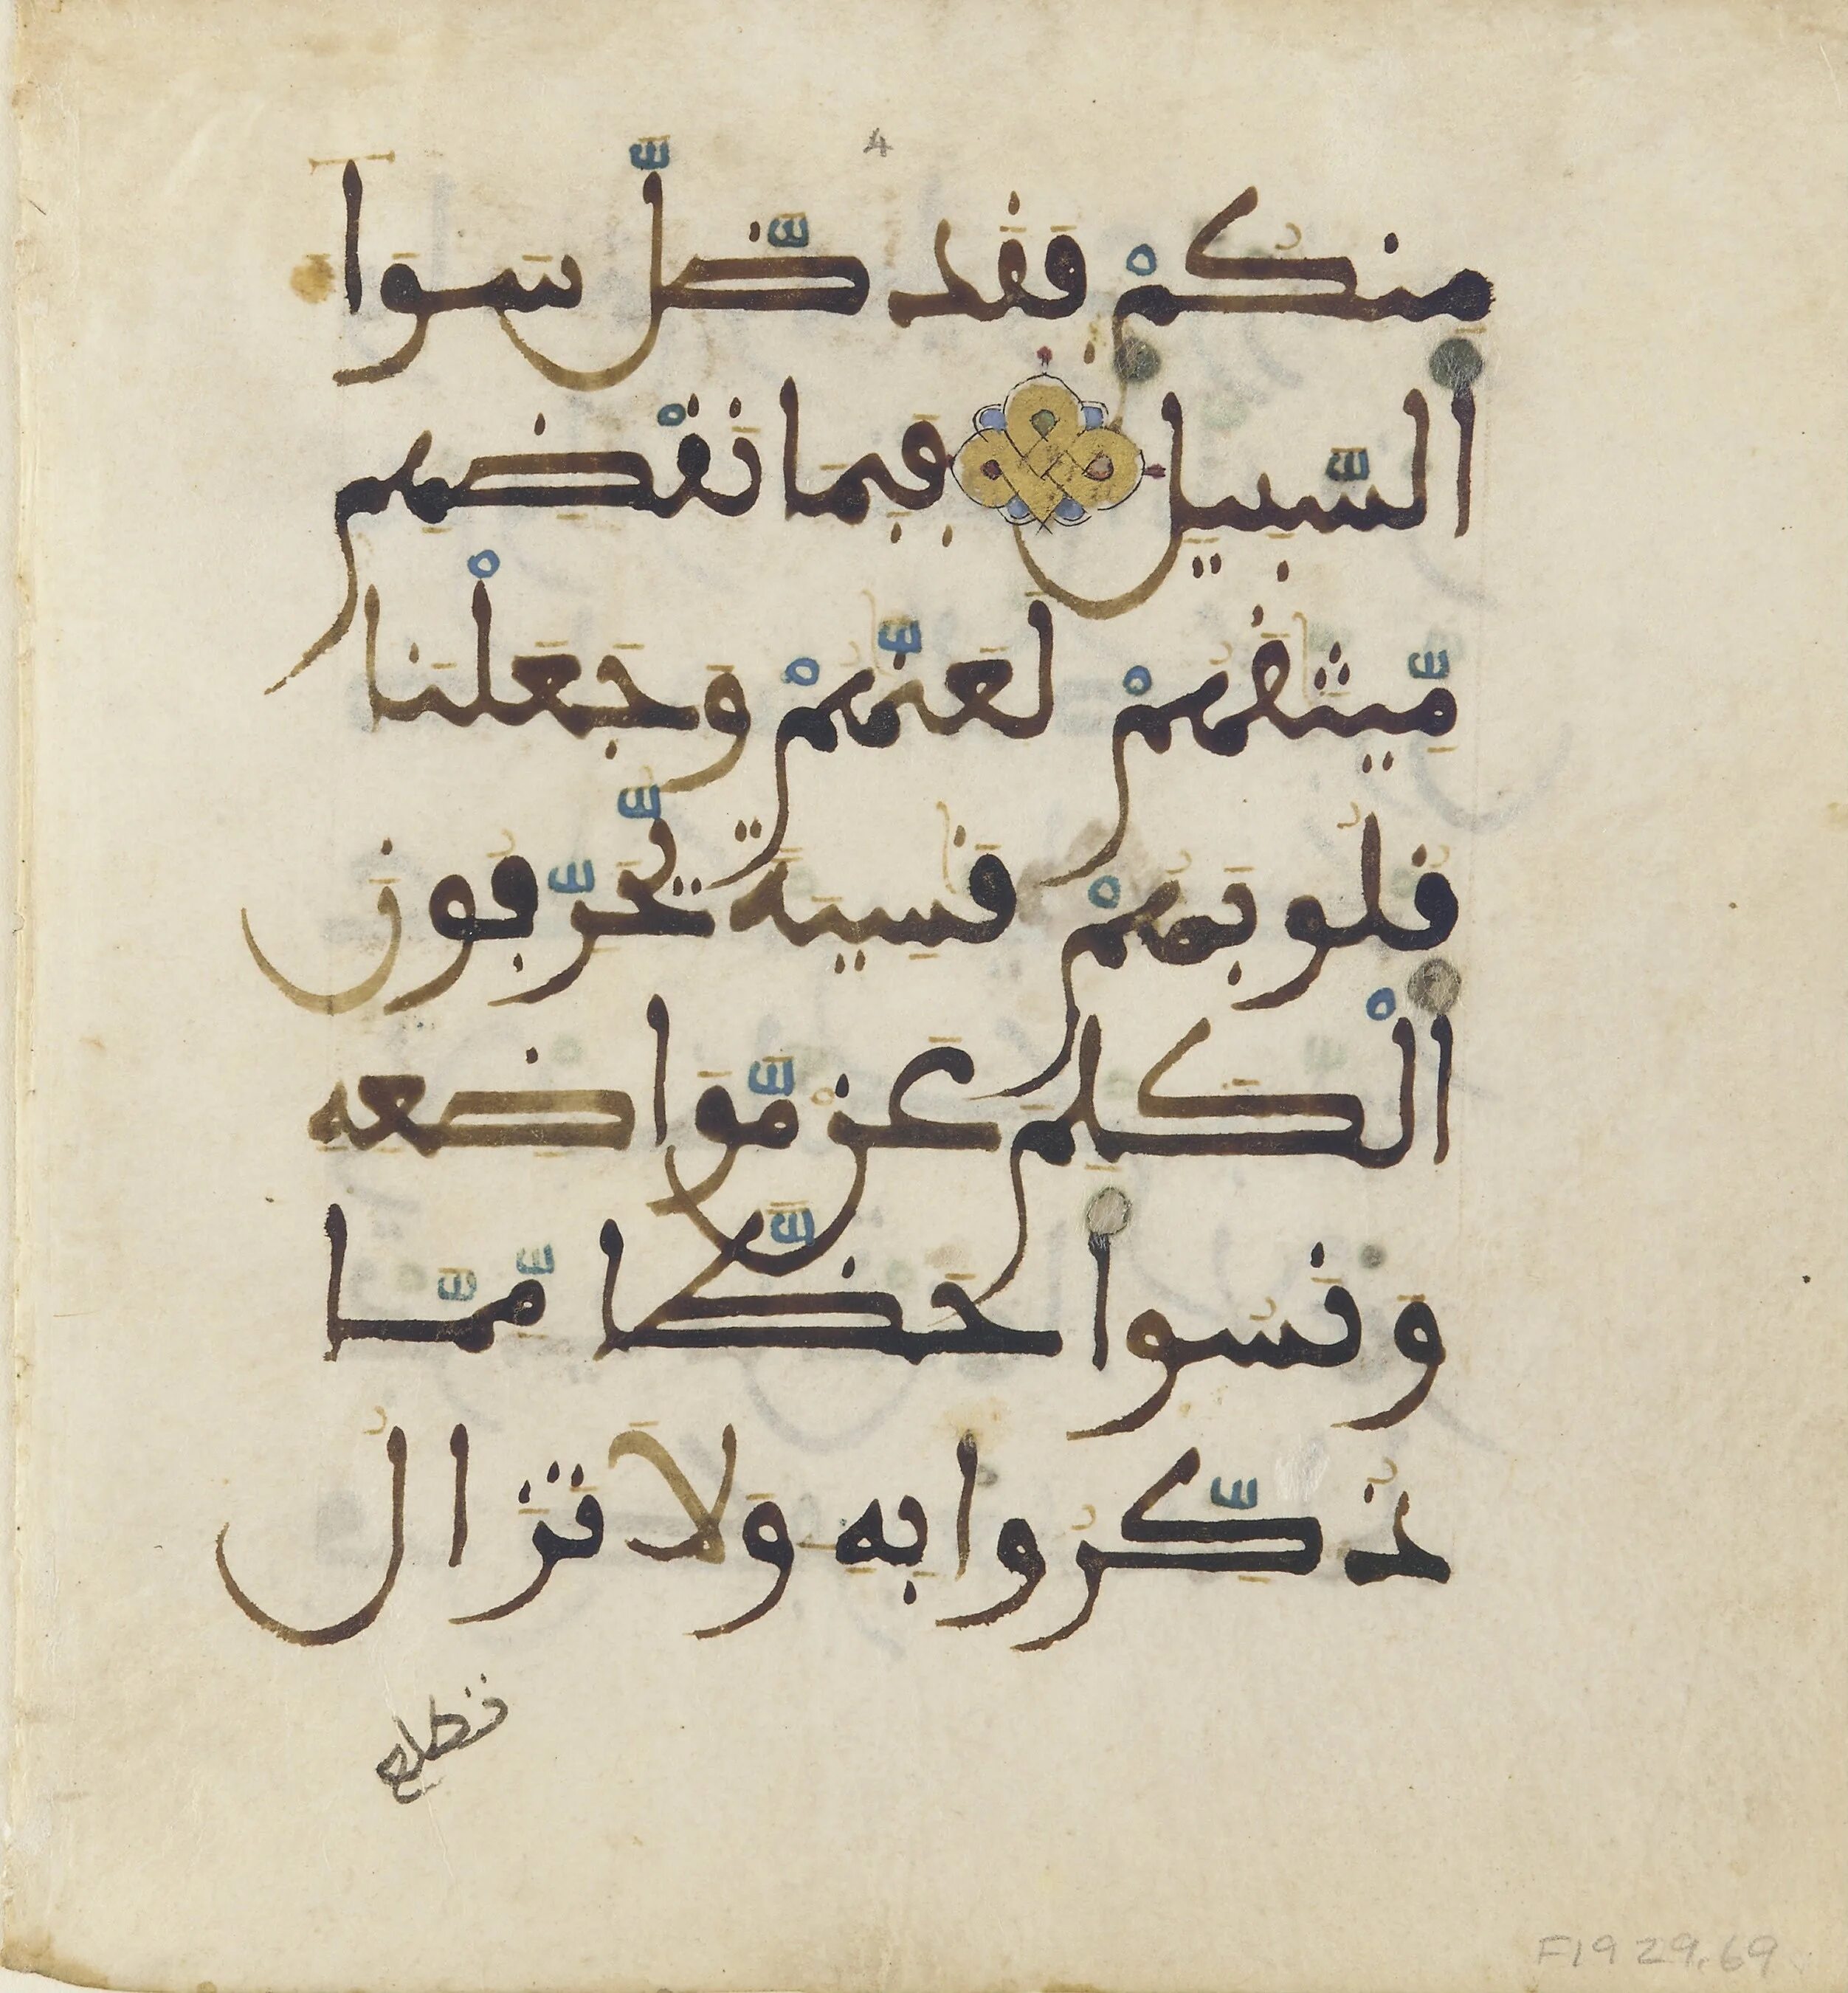 4
مِنكُمْ فَقَد ضَّلَّ سَوَآ
اَلسَّبِيلِ فَبِمَا نَقْضِهِم
مِّيثَٰقَهُمْ لَعَنَّٰهُمْ وَجَعَلْنَا
قُلُوبَهُمْ قَٰسِيَةً يُّحَرِّفُونَ
اَلْكَلِمَ عَن مَّوَاضِعِهِ
وَنَسُوا حَظّٗا مِّمَّا
ذُكِّرُوا بِهِ وَلَا تَزَالُ
تطلع
F1929.69